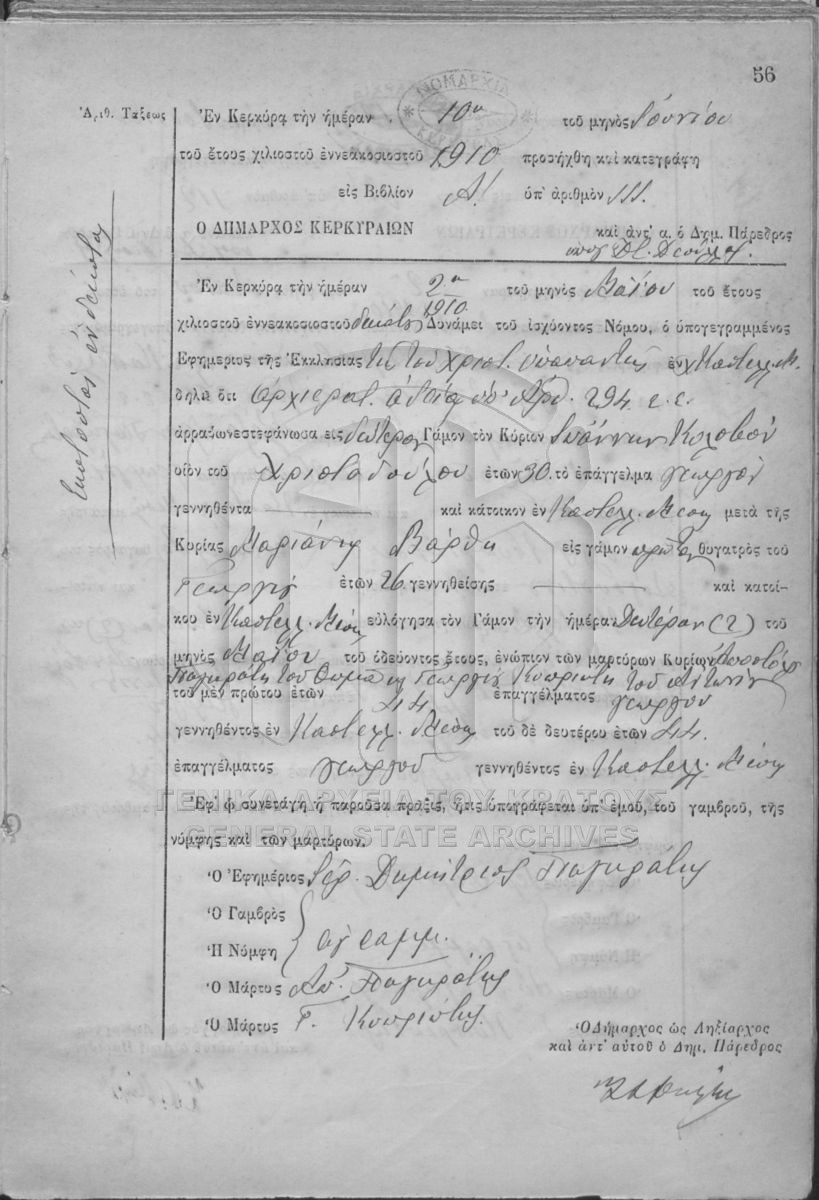 56
ΝΟΜΑΡΧΙΑ
Ἀριθ. Τάξεως
Ἑκατοστὸν ἑνδέκατον
Ἐν Κερκύρᾳ τὴν ἡμέραν 10η τοῦ μηνὸς Ἰουνίου
τοῦ ἔτους χιλιοστοῦ ἐννεακοσιοστοῦ 1910 προσήχθη καὶ κατεγράφη
εἰς Βιβλίον Α! ὑπ' ἀριθμὸν 111.
Ο ΔΗΜΑΡΧΟΣ ΚΕΡΚΥΡΑΙΩΝ καὶ ἀντ' α. ὁ Δημ. Πάρεδρος
Ἐν Κερκύρᾳ τὴν ἡμέραν 2α τοῦ μηνὸς Μαΐου τοῦ ἔτους
1910
χιλιοστοῦ ἐννεακοσιοστοῦ δεκάτου Δυνάμει τοῦ ἰσχύοντος Νόμου, ὁ ὑπογεγραμμένος
Ἐφημέριος τῆς Ἐκκλησίας τῆς τοῦ Χριστ. Ὑπαπαντῆς ἐν Καστελλ. Μέσ.
δηλῶ ὅτι ἀρχιερατ. ἀδείᾳ ὑπ' ἀρθ. 294 ἐ. ἐ.
ἀρραβωνεστεφάνωσα εἰς δεύτερον Γάμον τὸν Κύριον Ἰωάννην Κολοβὸν
υἱὸν τοῦ Χριστοδούλου ἐτῶν 30 τὸ ἐπάγγελμα γεωργὸν
γεννηθέντα καὶ κάτοικον ἐν Καστελλ. Μέση μετὰ τῆς
Κυρίας Μαριάνης Βάρθη εἰς γάμον πρῶτον θυγατρὸς τοῦ
Γεωργίου ἐτῶν 26 γεννηθείσης καὶ κατοί-
κου ἐν Καστελλ. Μέση εὐλόγησα τὸν Γάμον τὴν ἡμέραν Δευτέραν (2) τοῦ
μηνὸς Μαΐου τοῦ ὁδεύοντος ἔτους, ἐνώπιον τῶν μαρτύρων Κυρίων
Παγκράτη τοῦ Θωμᾶ κ Γεωργίου Κυπριώτη τοῦ Ἀντωνίου
τοῦ μὲν πρώτου ἐτῶν 44 ἐπαγγέλματος γεωργοῦ
γεννηθέντος ἐν Καστελλ. Μέση τοῦ δὲ δευτέρου ἐτῶν 44.
ἐπαγγέλματος γεωργοῦ γεννηθέντος ἐν Καστελλ. Μέση
ΓΕΝΙΚΑ ΑΡΧΕΙΑ ΤΟΥ ΚΡΑΤΟΥΣ
Ἐφ' ᾧ συνετάγη ἡ παροῦσα πρᾶξις, ἥτις ὑπογράφεται ὑπ' ἐμοῦ, τοῦ γαμβροῦ, τῆς
GENERAL STATE ARCHIVES
νύμφης καὶ τῶν μαρτύρων.
Ὁ Ἐφημέριος Ἱερ. Δημήτριος Παγκράτης
Ὁ Γαμβρὸς
ἀγραμμ.
Ἡ Νύμφη
Ὁ Μάρτυς Παγκράτης
Ὁ Μάρτυς Γ. Κυπριώτης.
Ὁ Δήμαρχος ὡς Ληξίαρχος
καὶ ἀντ' αὐτοῦ ὁ Δημ. Πάρεδρος